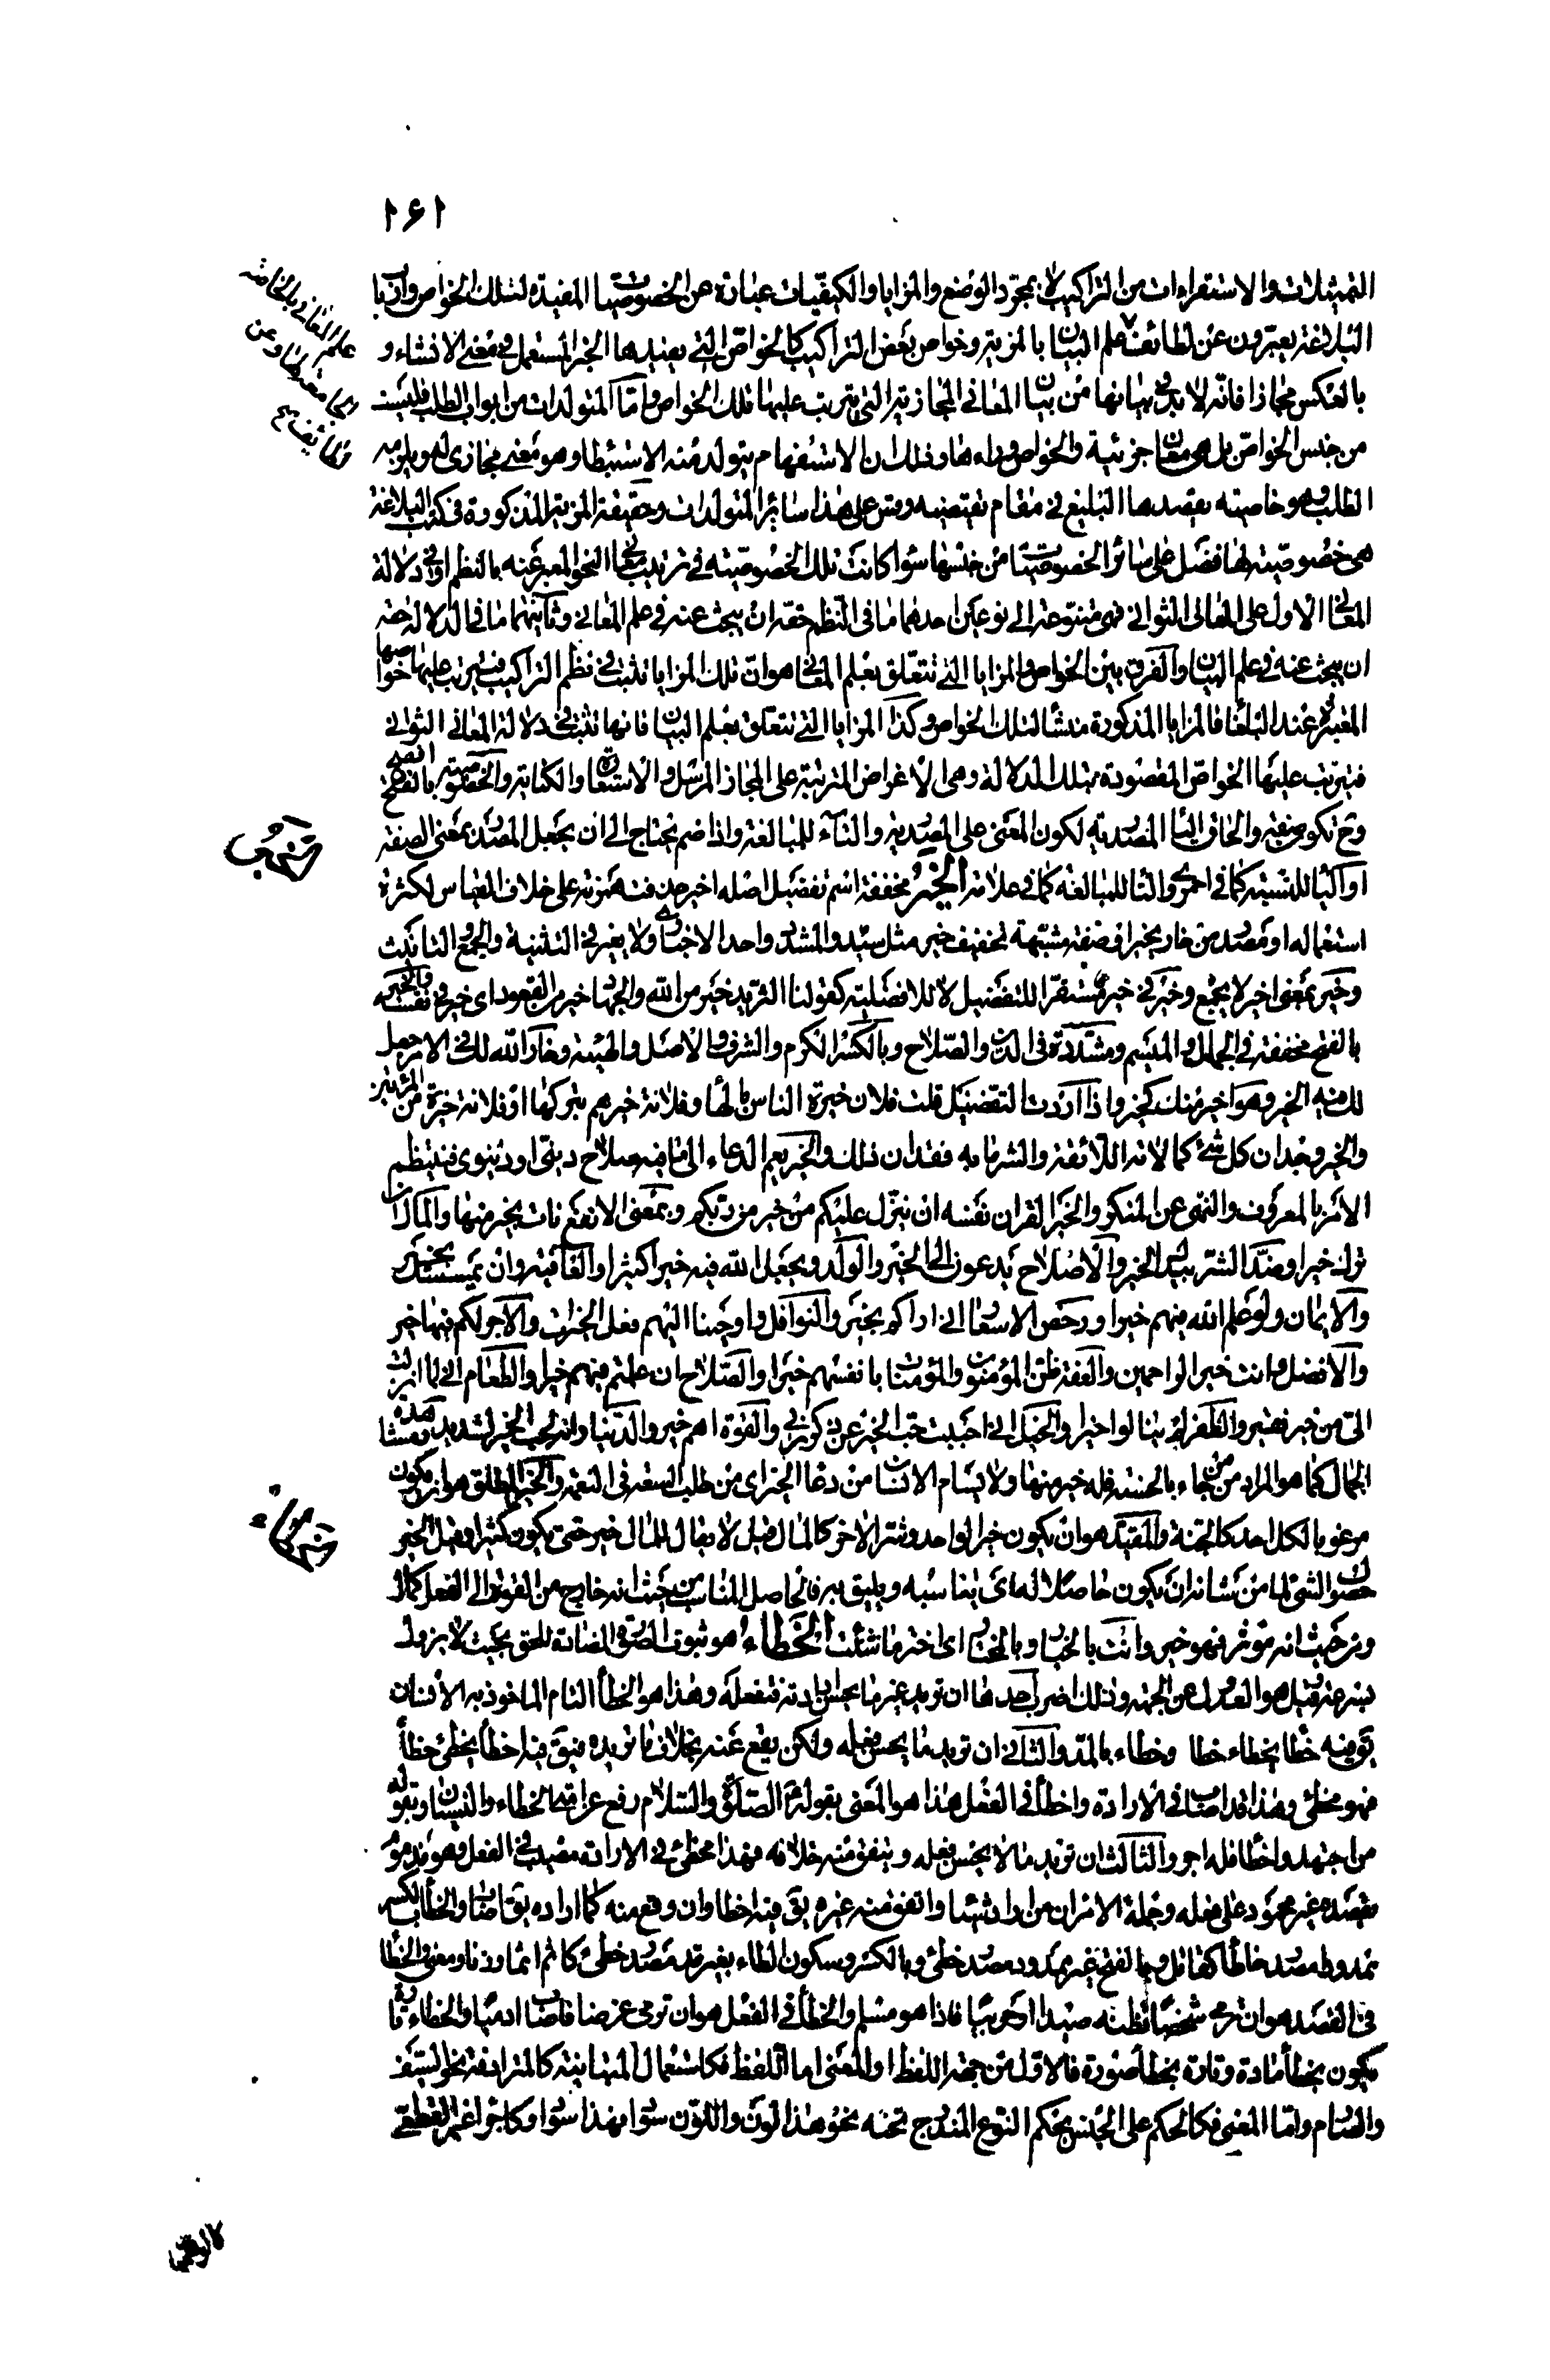 ١٦١
التمثيلات والاستقراءات من التراكيب لا بمجرد الوضع والمزايا والكيفيات عبارة عن الخصوصيات المفيدة لتلك الخواص وارباب
البلاغة يعبرون عن لطائف علم البيان بالمزية وخواص بعض التراكيب كالخواص التي يفيدها الخبر المستعمل في معنى الانشاء و
علم المعاني بالخاصة
الجامعة لها وعن
لطائف
بالعكس مجازا فانه لا بد في بيانها من بيان المعاني المجازية التي يترتب عليها تلك الخواص واما المتولدات من ابواب الطلب فليست
من جنس الخواص بل هي معان جزئية والخواص وراءها وذلك ان الاستفهام يتولد منه الاستبطاء وهو معنى مجازي له ويلزمه
الطلب وهو خاصيته يقصدها البليغ في مقام يقتضيه وقس على هذا سائر المتولدات وحقيقة المزية المذكورة في كتب البلاغة
هي خصوصية لها فضل على سائر الخصوصيات من جنسها سواء كانت تلك الخصوصية في ترتيب معاني النحو المعبر عنه بالنظم او في دلالة
المعاني الاول على المعاني الثواني فهي متنوعة الى نوعين احدهما ما في النظم حقه ان يبحث عنه في علم المعاني وثانيهما ما في الدلالة حقه
ان يبحث عنه في علم البيان والفرق بين الخواص والمزايا التي تتعلق بعلم المعاني هو ان تلك المزايا تثبت في نظم التراكيب فيترتب عليها خواصها
المعتبرة عند البلغاء فالمزايا المذكورة منشأ لتلك الخواص وكذا المزايا التي تتعلق بعلم البيان فانها تثبت في دلالة المعاني الثواني
فيترتب عليها الخواص المقصودة بتلك الدلالة وهي الاغراض المترتبة على المجاز المرسل والاستعارة والكناية والخصوصية بالفتح افصح
وح تكون صفة والحاق الياء المصدرية لكون المعنى على المصدرية والتاء للمبالغة واذا ضم يحتاج الى ان يجعل المصدر بمعنى الصفة
او الياء للنسبة كما في احمري والتاء للمبالغة كما في علامة الخير مخففة اسم تفضيل اصله اخير حذفت همزته على خلاف القياس لكثرة
استعماله او مصدر من خار يخير او صفة مشبهة تخفيف خير مثل سيد والمشدد واحد الاخيار ولا يغير في التثنية والجمع والتانيث
وخير بمعنى اخير لا يجمع وخير في خير مستقرا للتفضيل لا للافضلية كقولنا الثريد خير من الله والجهاد خير من القعود اي خير في نفسه والخير
بالفتح مخففة في الجمال والميسم ومشددة في الدين والصلاح وبالكسر الكرم والشرف والاصل والهيئة وخار الله لك في الامر جعل
لك فيه الخير وهو اخير منك كخير واذا اردت التفضيل قلت فلان خيرة الناس بالهاء وفلانة خيرهم بتركها او فلانة خيرة من المرئتين
والخير وجدان كل شيء كمالاته اللائقة والشر ما به فقدان ذلك والخير يعم الدعاء الى ما فيه صلاح ديني او دنيوي فينتظم
الامر بالمعروف والنهي عن المنكر والخير القران نفسه ان ينزل عليكم من خير من ربكم وبمعنى الانفع نات بخير منها والمال ان
ترك خيرا وضد الشر بيدك الخير والاصلاح يدعون الى الخير والولد ويجعل الله فيه خيرا كثيرا والعافية وان يمسسك بخير
والايمان ولو علم الله فيهم خيرا ورخص الاسعار اني اراكم بخير والنوافل واوحينا اليهم فعل الخيرات والاجر لكم فيها خير
والافضل وانت خير الراحمين والعفة ظن المؤمنون والمؤمنات بانفسهم خيرا والصلاح ان علمتم فيهم خيرا والطعام اني لما انزلت
الي من خير فقير والظفر لم ينالوا خيرا والخيل اني احببت حب الخير عن ذكر ربي والقوة اهم خير والدنيا وانه لحب الخير لشديد
الجمال كما هو المراد من من جاء بالحسنة فله خير منها ولا يسأم الانسان من دعاء الخير اي من طلب السعة في النعمة والخير المطلق هو ان يكون
مرغوبا لكل احد كالجنة والمقيد هو ان يكون خيرا لواحد وشر الاخر كالمال قيل لا يقال للمال خير حتى يكون كثيرا وقيل الخير
حصول الشيء لما من شانه ان يكون حاصلا له اي يناسبه ويليق به فالحاصل المناسب من حيث انه خارج من القوة الى الفعل كمال
ومن حيث انه مؤثر فهو خير وانت بالخيار وبالمختار اي اختر ما شئت الخطاء هو ثبوت الصورة المضادة للحق بحيث لا يزول
بسرعة وقيل هو العدول عن الجهة وذلك اضرب احدها ان تريد غير ما يحسن ارادته فتفعله وهذا هو الخطأ التام الماخوذ به الانسان
يق فيه خطأ يخطاء خطا وخطاء بالمد والثاني ان تريد ما يحسن فعله ولكن يقع عنه بخلاف ما تريده فيق فيه اخطأ يخطئ خطأ
فهو مخطئ وهذا قد اصاب في الارادة واخطأ في الفعل هذا هو المعني بقوله الصلوة والسلام رفع عن امتي الخطاء والنسيان وبقوله
من اجتهد واخطأ فله اجر والثالث ان تريد ما لا يحسن فعله ويتفق منه خلافه فهذا مخطئ في الارادة مصيب في الفعل وهو مذموم
بقصده غير محمود على فعله وجملة الامر ان من اراد شيئا واتفق منه غيره يق فيه اخطا وان وقع منه كما اراده يق اصاب والخطأ بالكسر
ممدودا مصدر خاطأ كقاتل وبالفتح غير ممدود مصدر خطئ وبالكسر وسكون الطاء بغير مد مصدر خطئ كاثم اثما وزنا ومعنى والخطا
في القصد هو ان ترمي شخصا تظنه صيدا او حربيا فاذا هو مسلم والخطأ في الفعل هو ان ترمي غرضا فاصاب ادميا والخطاء تارة
يكون بخطأ مادة وتارة بخطأ صورة فالاول من جهة اللفظ او المعنى اما اللفظ فكاستعمال المتباينة كالمترادفة نحو السيف
والصارم واما المعنى فكالحكم على الجنس بحكم النوع المندرج تحته نحو هذا لون واللون سواد فهذا سواد وكاجراء غير القطعي